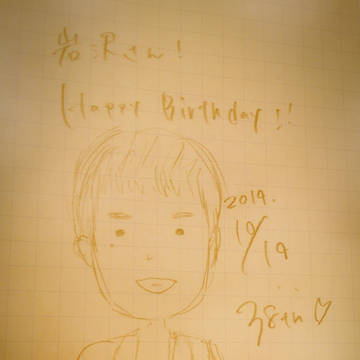 岩沢さん!
Happy Birthday!!
2019.
10/19